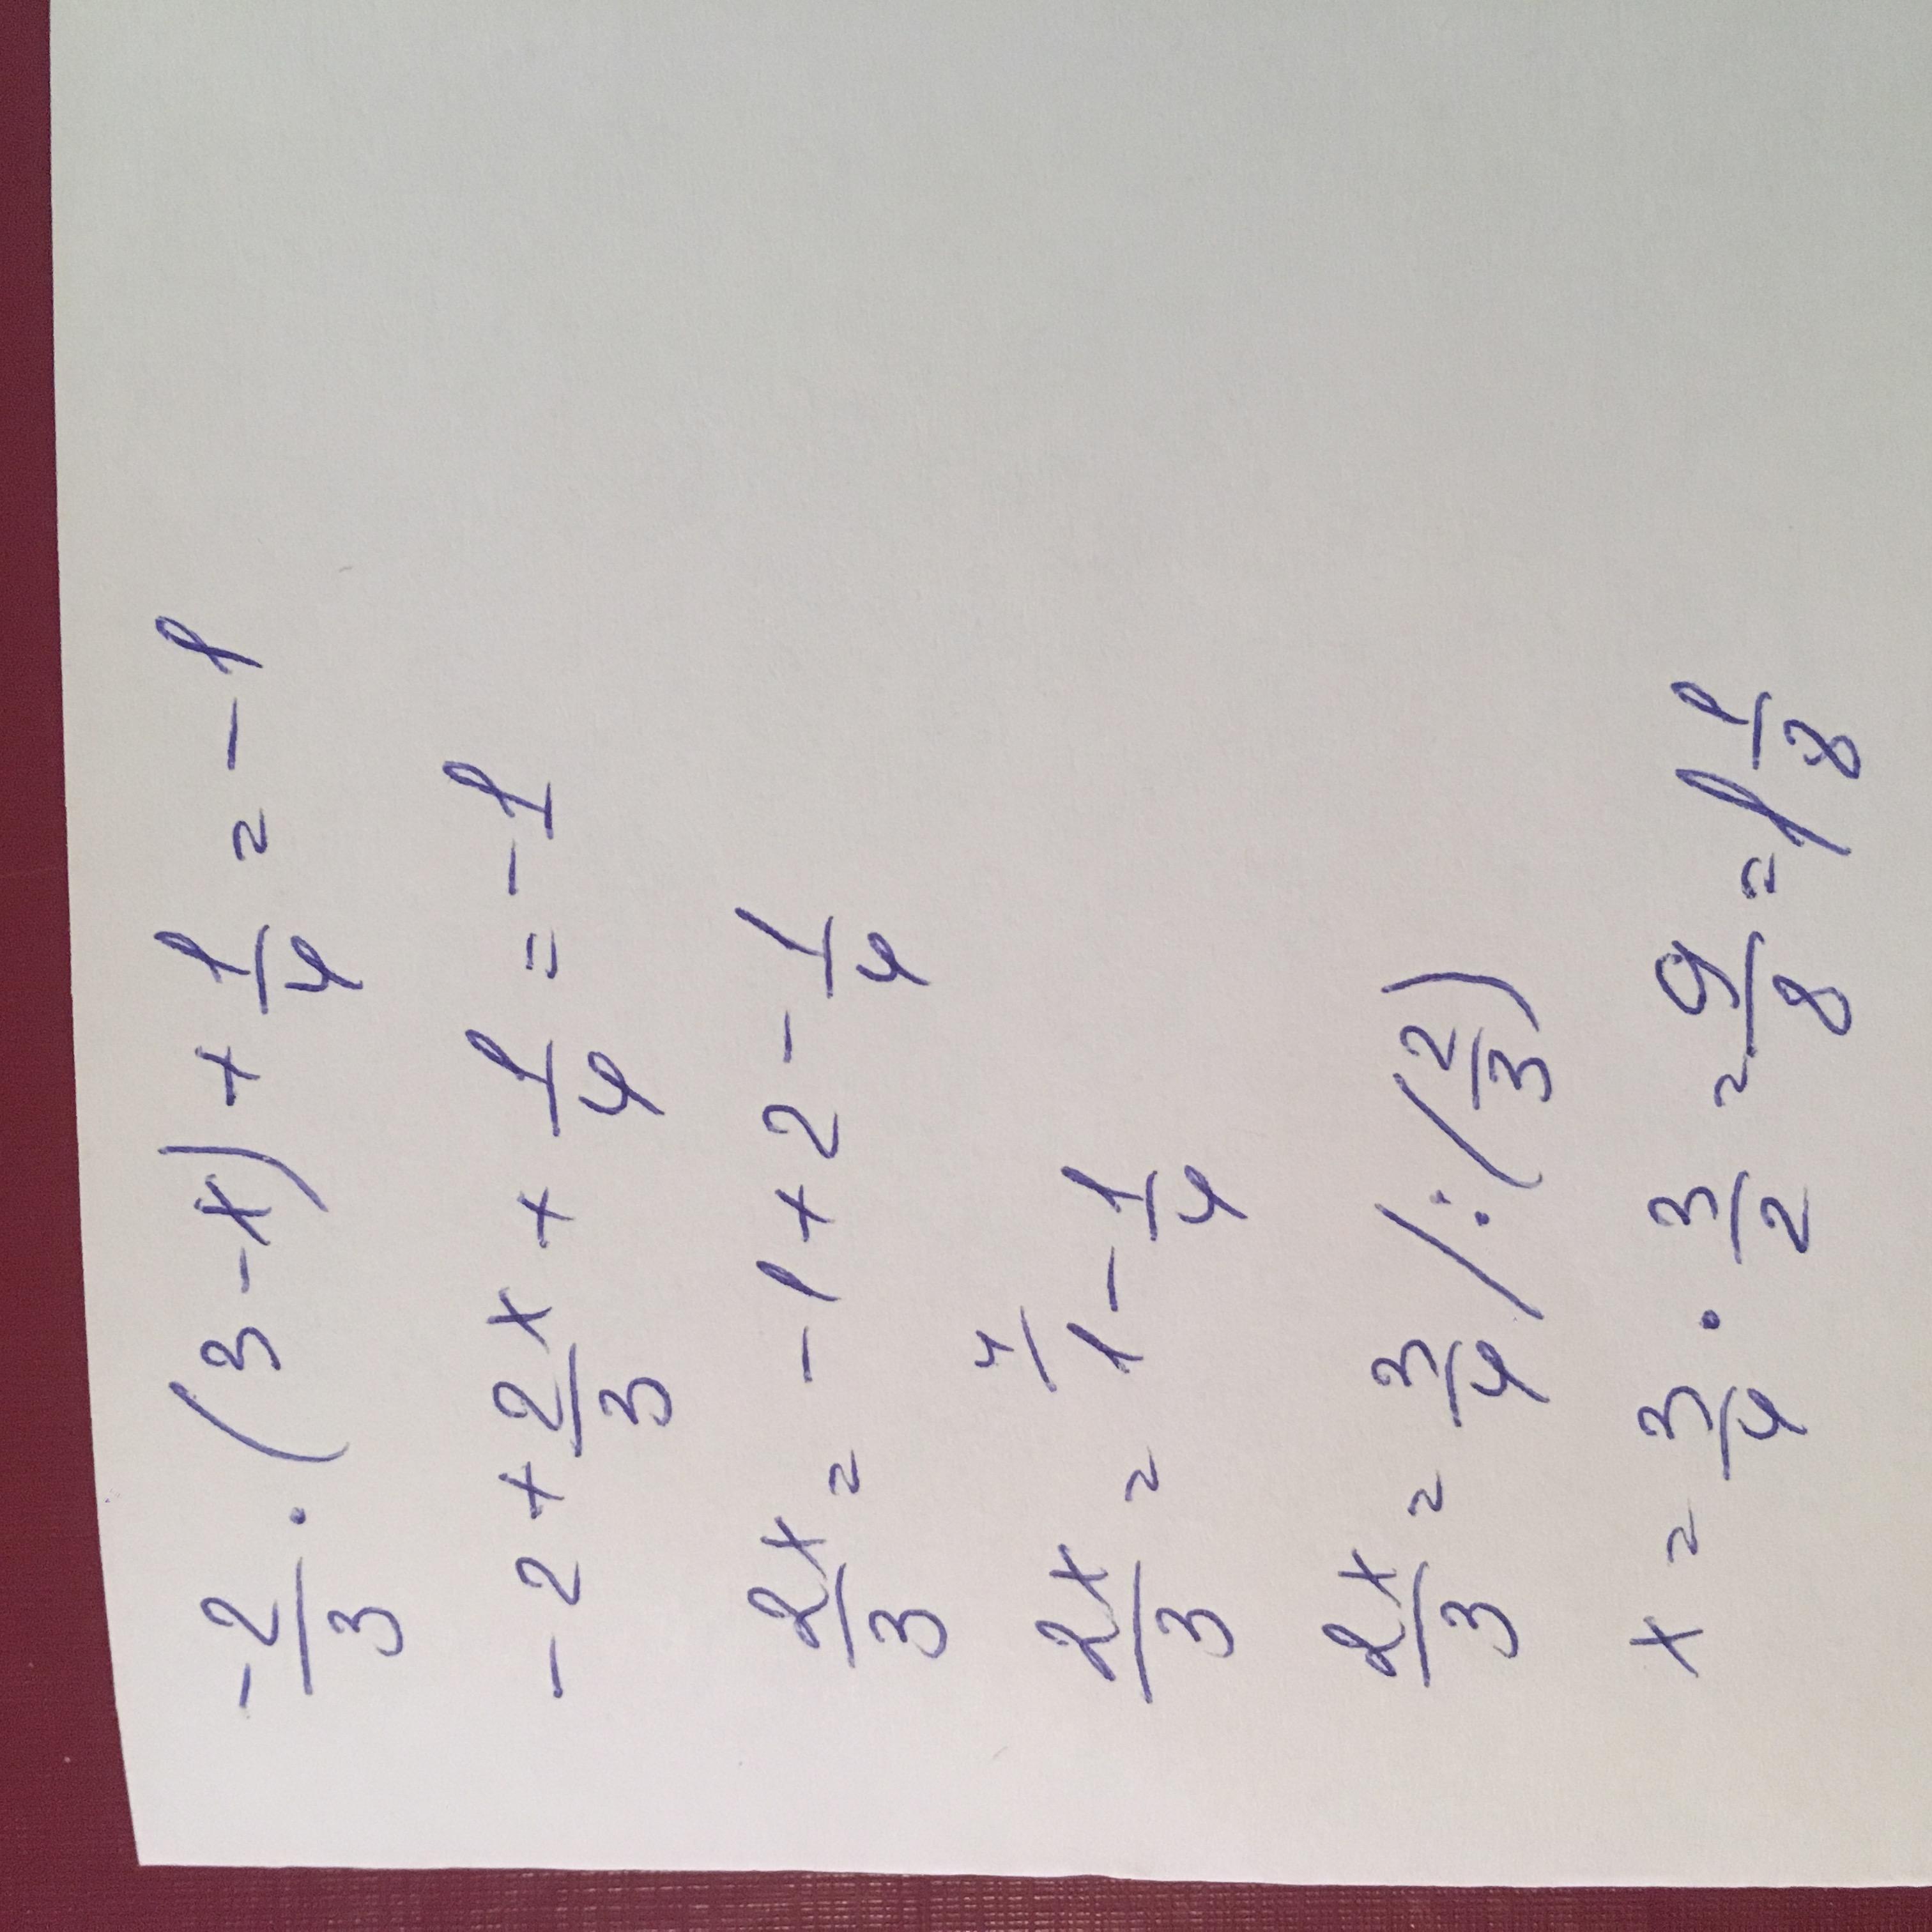 -2/3 · (3 - x) + 1/4 = -1
-2 + 2x/3 + 1/4 = -1
2x/3 = -1 + 2 - 1/4
2x/3 = 4/ 1 - 1/4
2x/3 = 3/4 / : (2/3)
x = 3/4 · 3/2 = 9/8 = 1 1/8